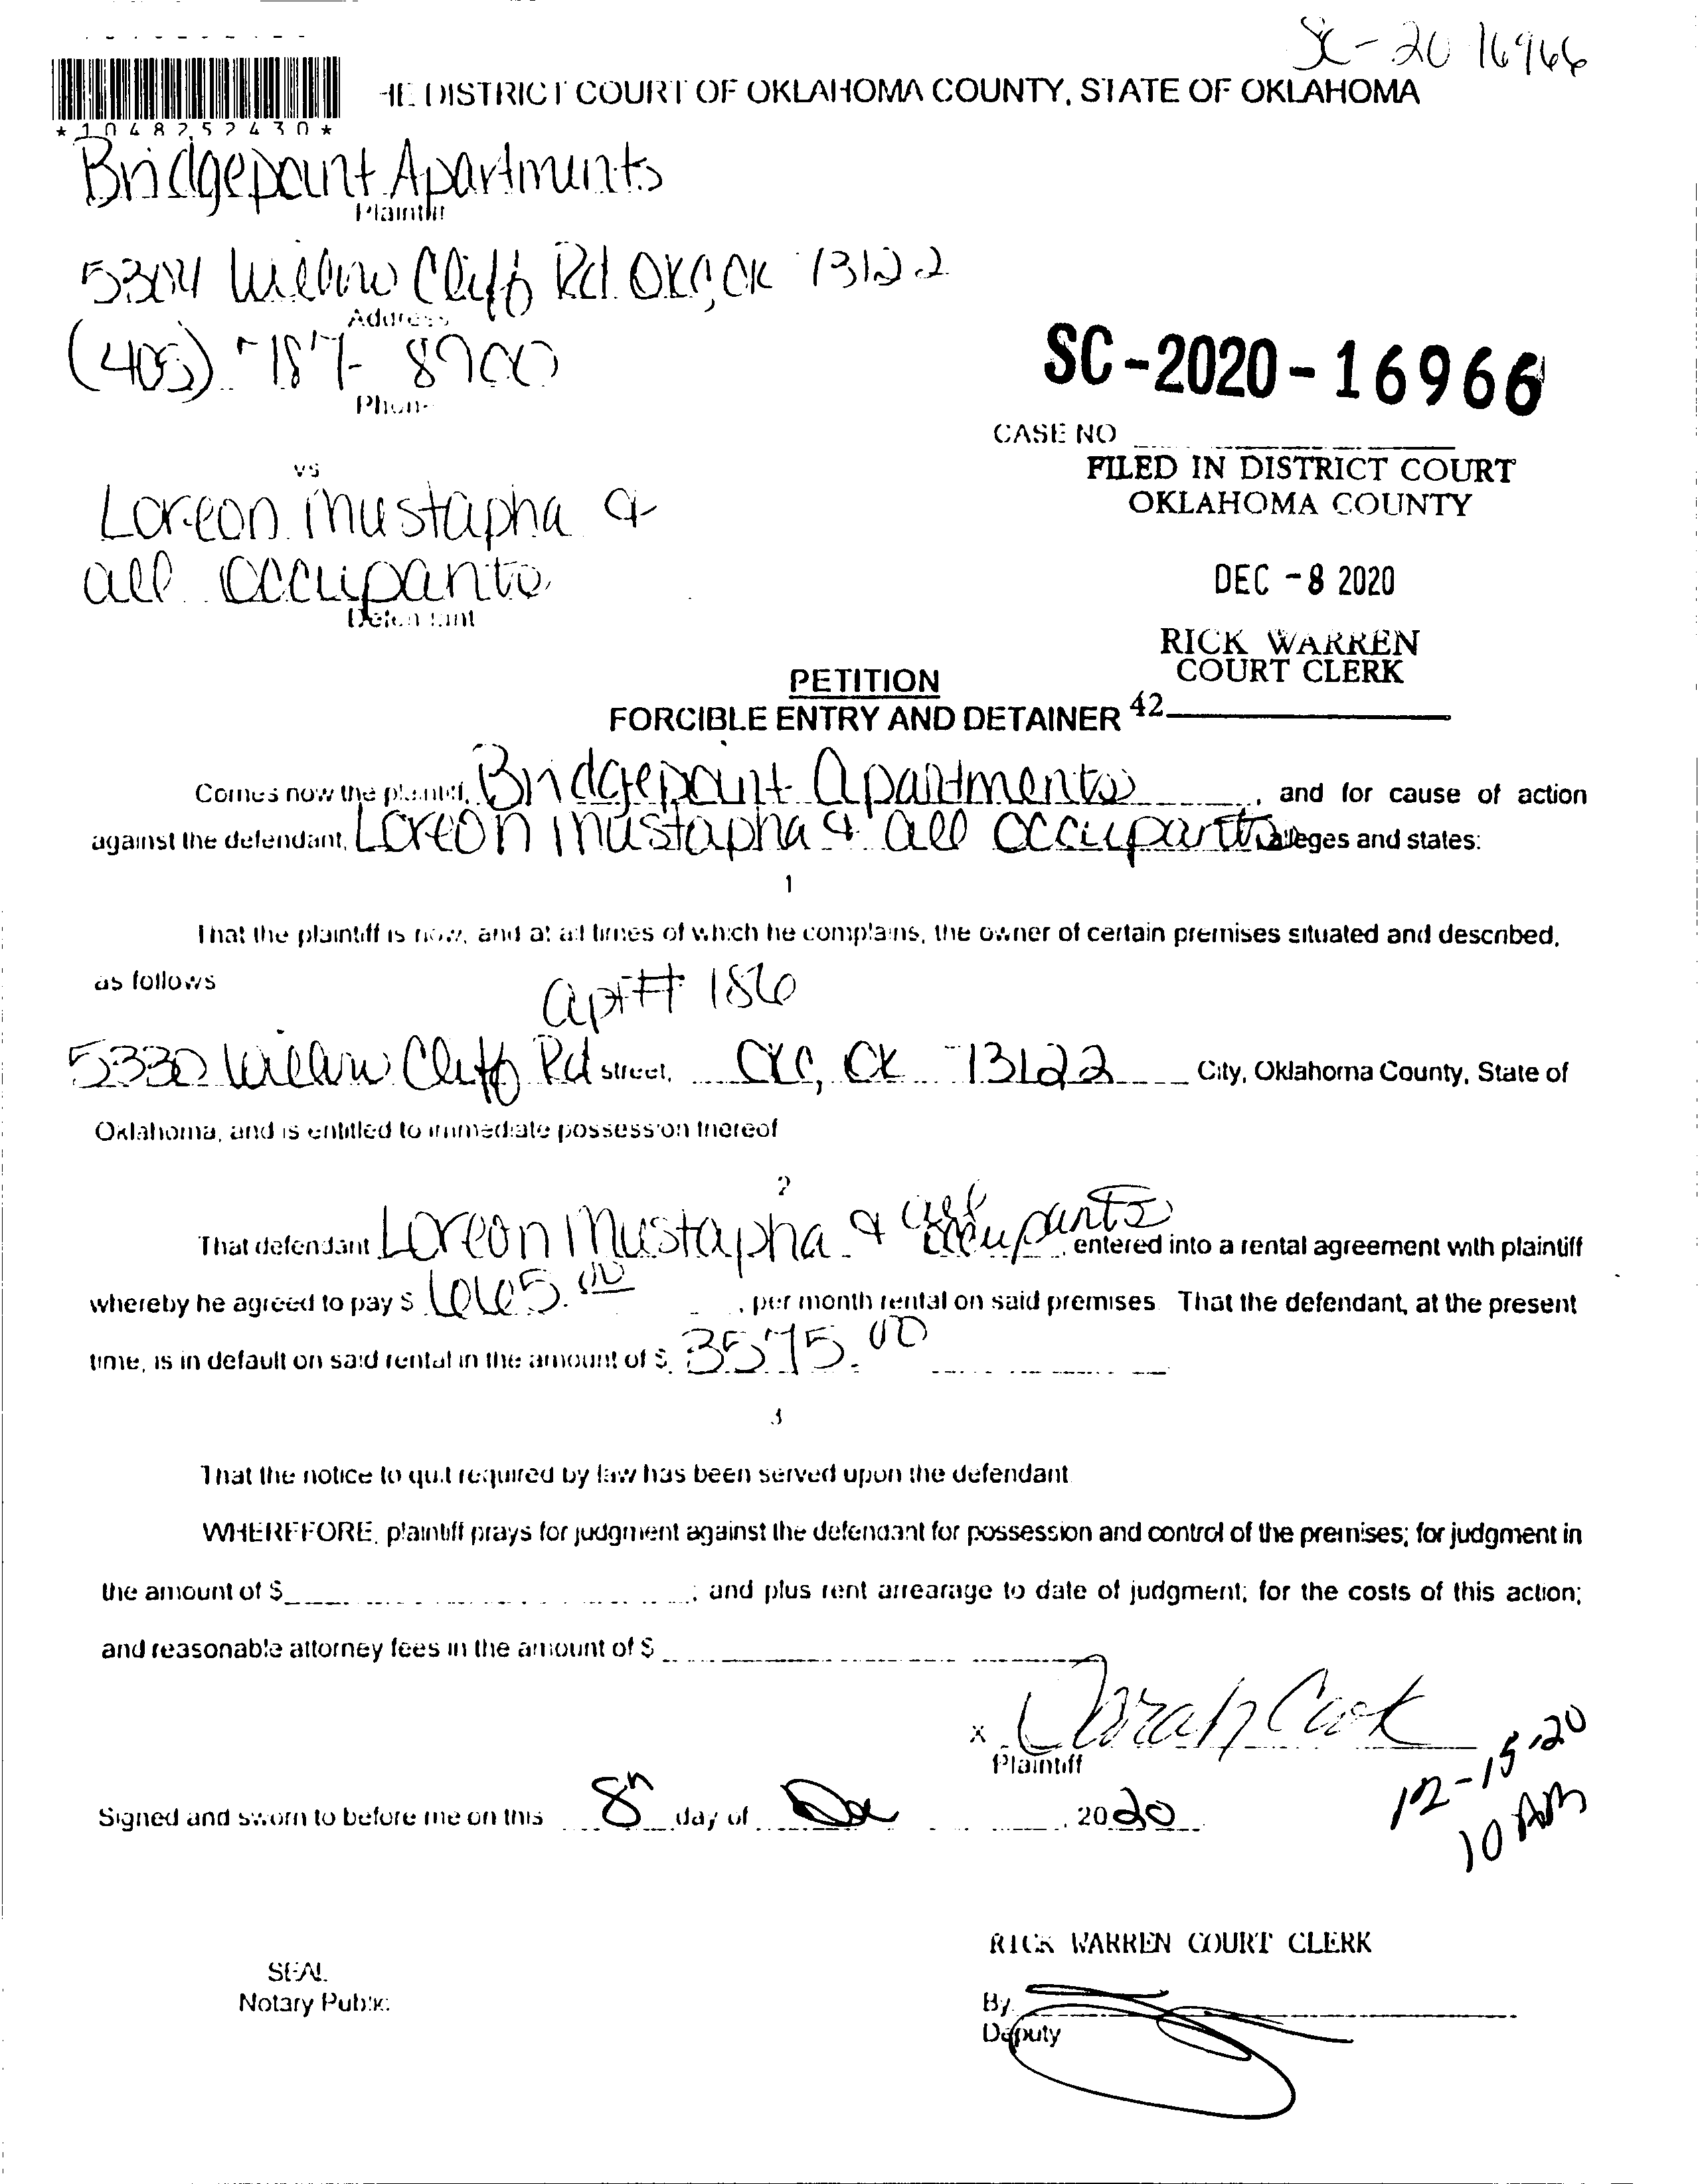 SC-20 16966
HE DISTRICT COURT OF OKLAHOMA COUNTY, STATE OF OKLAHOMA
*1048252430*
Bridgepoint Apartments
Plaintiff
5304 Willow Cliff Rd OKC, OK 73122
Address
(405) 787-8900
Phone
SC-2020-16966
CASE NO
vs
FILED IN DISTRICT COURT
OKLAHOMA COUNTY
Loreon Mustapha &
all occupants
Defendant
DEC -8 2020
RICK WARREN
COURT CLERK
PETITION
FORCIBLE ENTRY AND DETAINER 42
Comes now the plaintiff, Bridgepoint Apartments, and for cause of action
against the defendant, Loreon Mustapha & all occupants alleges and states:
1
That the plaintiff is now, and at all times of which he complains, the owner of certain premises situated and described,
as follows
apt# 186
5330 Willow Cliff Rd street, OKC, OK 73122 City, Oklahoma County, State of
Oklahoma, and is entitled to immediate possession thereof
2
That defendant Loreon Mustapha & all occupants, entered into a rental agreement with plaintiff
whereby he agreed to pay $ 665.00, per month rental on said premises. That the defendant, at the present
time, is in default on said rental in the amount of $ 3575.00
3
That the notice to quit required by law has been served upon the defendant
WHEREFORE, plaintiff prays for judgment against the defendant for possession and control of the premises; for judgment in
the amount of $ ; and plus rent arrearage to date of judgment; for the costs of this action;
and reasonable attorney fees in the amount of $
x
Plaintiff
Signed and sworn to before me on this 8th day of Dec, 2020
12-15-20
10 AM
RICK WARREN COURT CLERK
SEAL
Notary Public
By
Deputy